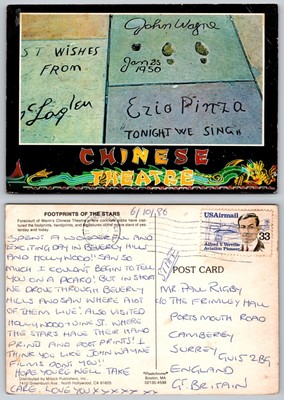 John Wayne
ST WISHES
FROM
Jan 25
1950
Ezio Pinza
"TONIGHT WE SING"
CHINESE
THEATRE
FOOTPRINTS OF THE STARS
6/10/86
Forecourt of Mann's Chinese Theatre
SPENT A WONDERFUL AND
EXCITING DAY IN BEVERLY HILLS
AND HOLLYWOOD!! SAW SO
MUCH I COULDN'T BEGIN TO TELL
YOU ON A PCARD! BUT IN SHORT
WE DROVE THROUGH BEVERLY
HILLS AND SAW WHERE A LOT
OF THEM LIVE! ALSO VISITED
HOLLYWOOD & VINE ST. WHERE
THE STARS HAVE THEIR HAND
PRINT AND FOOT PRINTS! I
THINK YOU LIKE JOHN WAYNE
FILMS DONT YOU!
HOPE YOU'RE WELL TAKE
CARE. LOVE YOU XXXXX XX
USAirmail
33
Alfred V. Verville
Aviation Pioneer
POST CARD
MR PAUL RIGBY
C/O THE FRIMLEY HALL
PORTSMOUTH ROAD
CAMBERLEY
SURREY
GU15 2BG
ENGLAND
GT. BRITAIN
Distributed by Mitock Publishers, Inc.
North Hollywood, CA 91605
Boston, MA